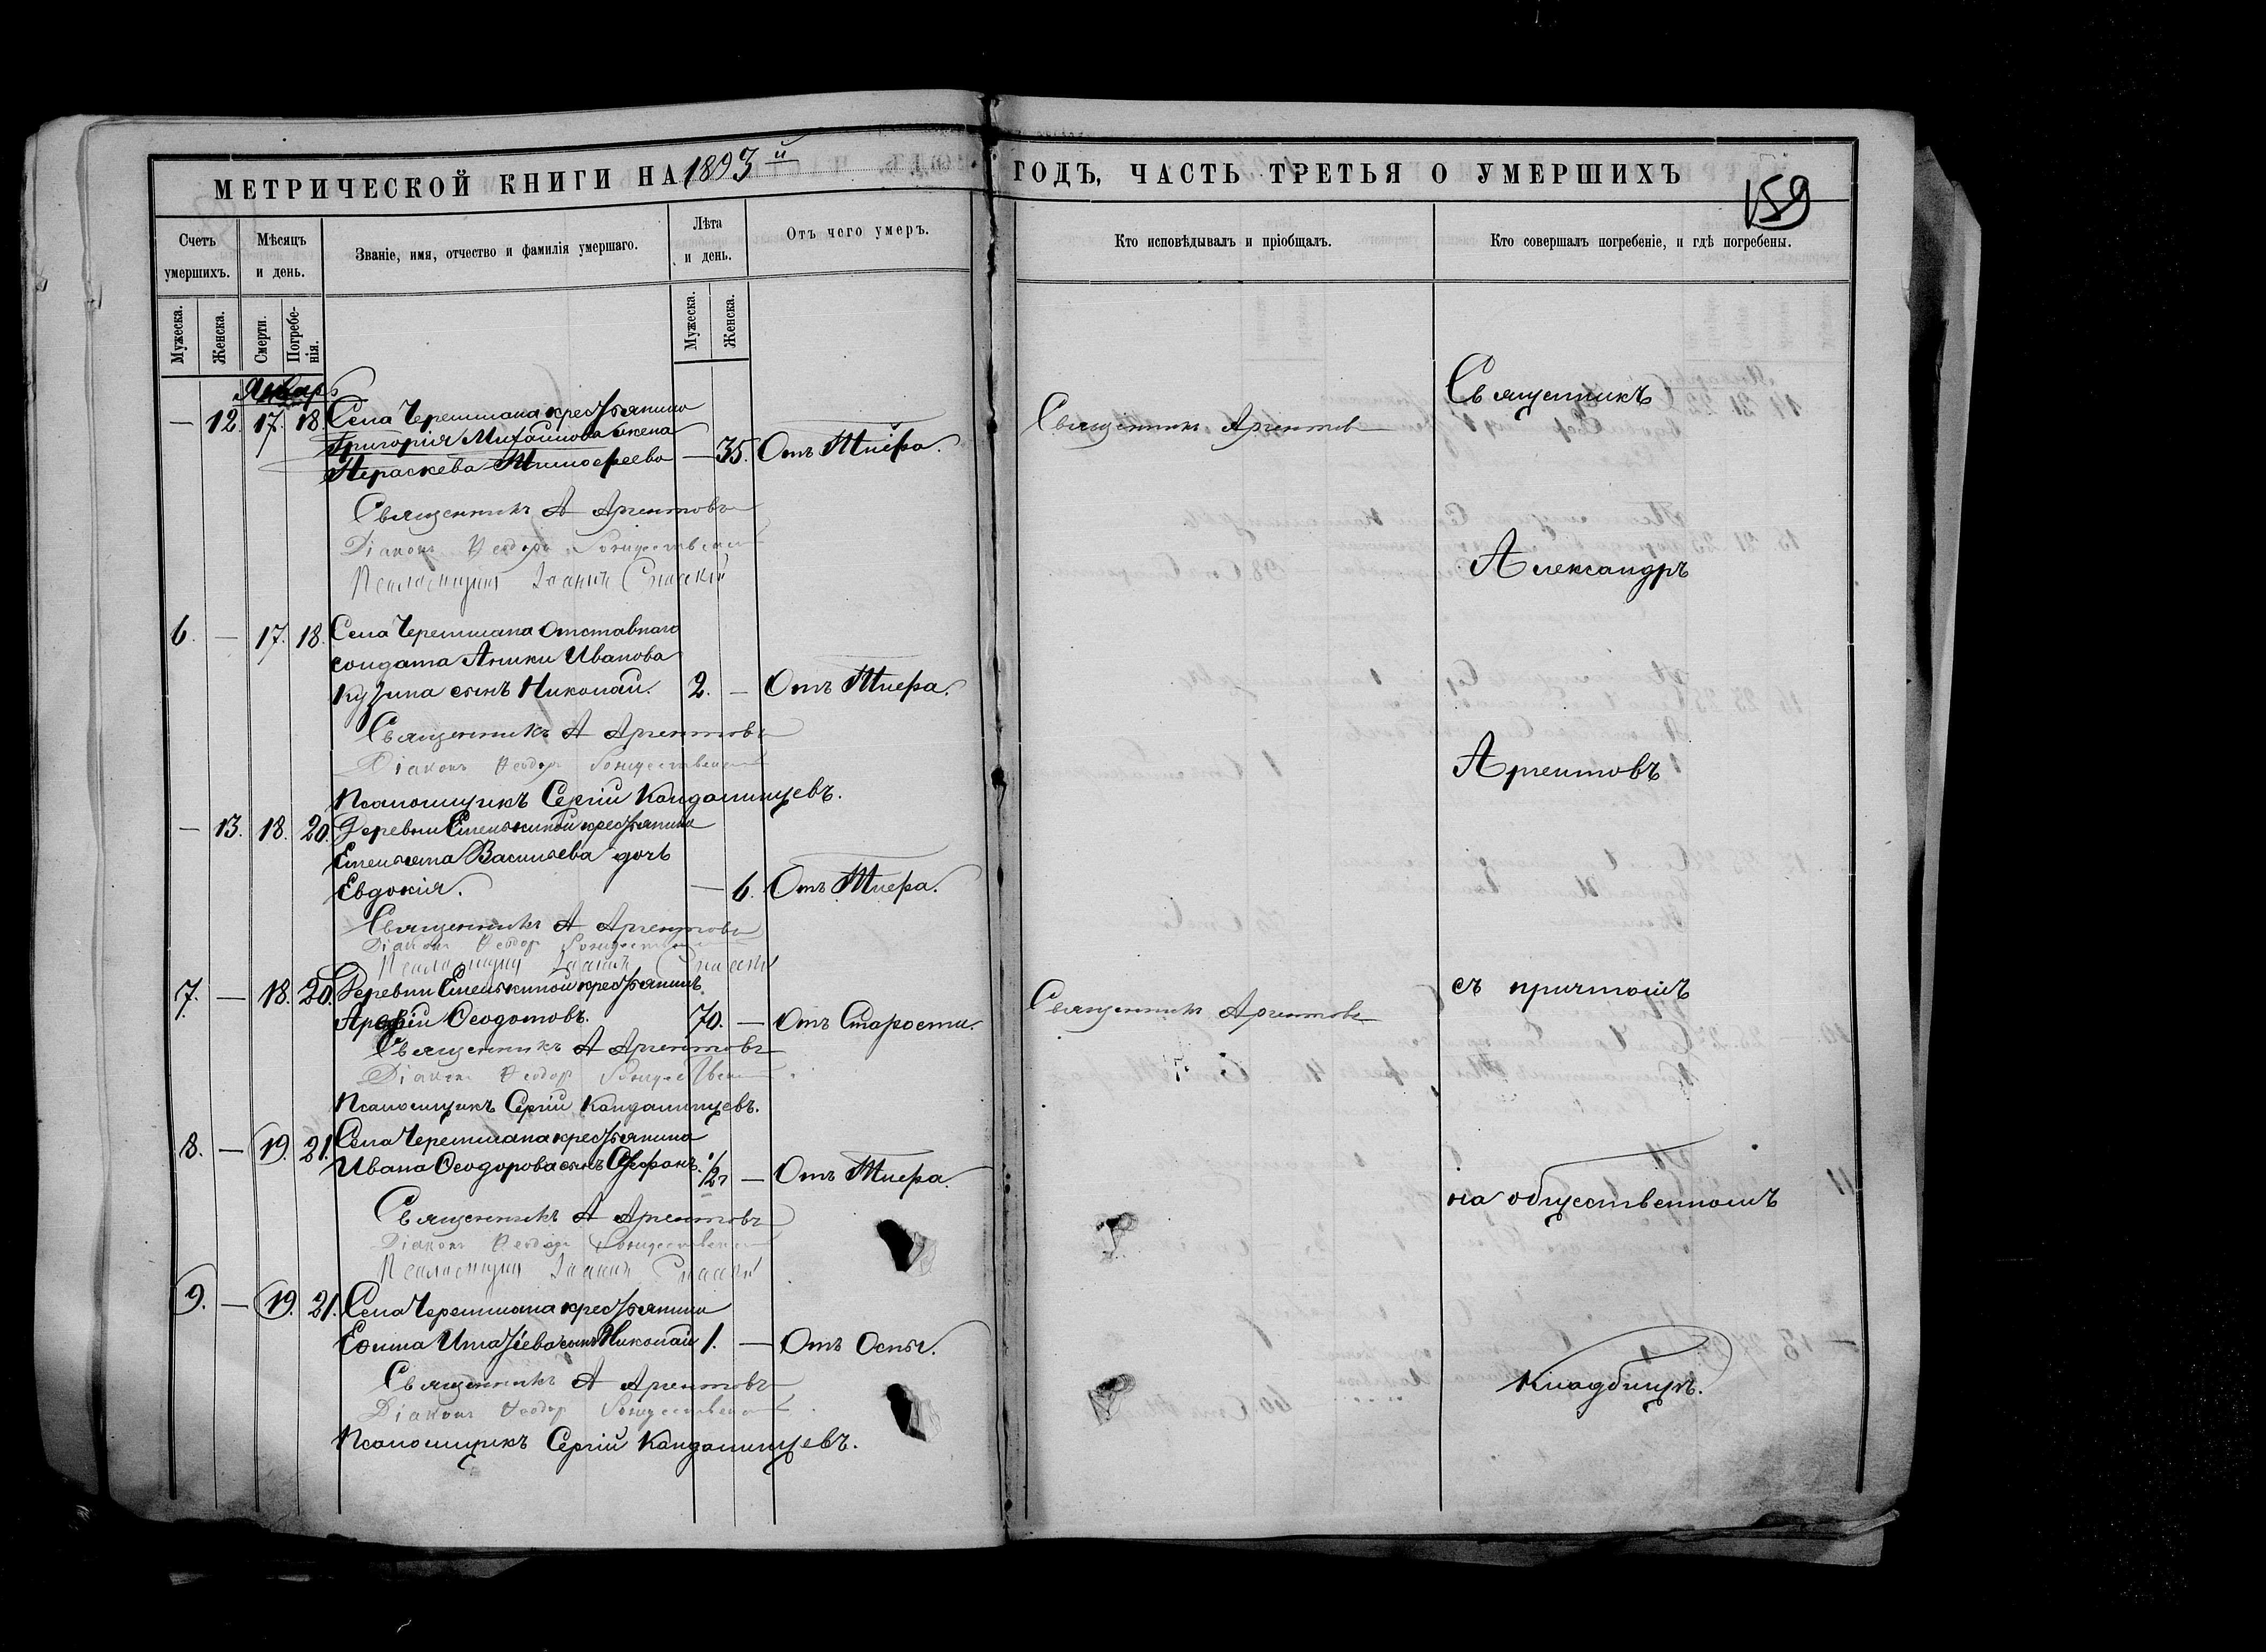 МЕТРИЧЕСКОЙ КНИГИ НА 1893й ГОДЪ, ЧАСТЬ ТРЕТЬЯ О УМЕРШИХЪ
159
Счетъ умершихъ.
Мѣсяцъ и день.
Званіе, имя, отчество и фамилія умершаго.
Лѣта и день.
Отъ чего умеръ.
Кто исповѣдывалъ и пріобщалъ.
Кто совершалъ погребеніе, и гдѣ погребены.
Мужеска.
Женска.
Смерти.
Погребенія.
Мужеска.
Женска.
Январь
— 12. 17. 18. Села Черемшана крестьянина
Григорія Михайлова жена
Параскева Тимофеева — 35. Отъ Тифа.
Священникъ Аргентовъ
Священникъ А Аргентовъ
Діаконъ Ѳеодоръ Рождественскій
Псаломщикъ Іоаннъ Спасскій
6. — 17. 18. Села Черемшана отставнаго
солдата Аники Иванова
Кузина сынъ Николай. 2. — Отъ Тифа.
Священникъ А Аргентовъ
Діаконъ Ѳеодоръ Рождественскій
Псаломщикъ Сергій Кандалинцевъ.
— 13. 18. 20. Деревни Емелькиной крестьянина
Емельяна Васильева дочь
Евдокія. — 6. Отъ Тифа.
Священникъ А Аргентовъ
Діаконъ Ѳеодоръ Рождественскій
Псаломщикъ Іоаннъ Спасскій
7. — 18. 20. Деревни Емелькиной крестьянинъ
Арефій Ѳеодотовъ. 70. — Отъ Старости.
Священникъ Аргентовъ
Священникъ А Аргентовъ
Діаконъ Ѳеодоръ Рождественскій
Псаломщикъ Сергій Кандалинцевъ.
8. — 19. 21. Села Черемшана крестьянина
Ивана Ѳеодорова сынъ 1/2 — Отъ Тифа.
Священникъ А Аргентовъ
Діаконъ Ѳеодоръ Рождественскій
Псаломщикъ Іоаннъ Спасскій
9. — 19. 21. Села Черемшана крестьянина
Николай 1. — Отъ Оспы.
Священникъ А Аргентовъ
Діаконъ Ѳеодоръ Рождественскій
Псаломщикъ Сергій Кандалинцевъ.
Священникъ
Александръ
Аргентовъ
съ причтомъ
на общественномъ
кладбищѣ.